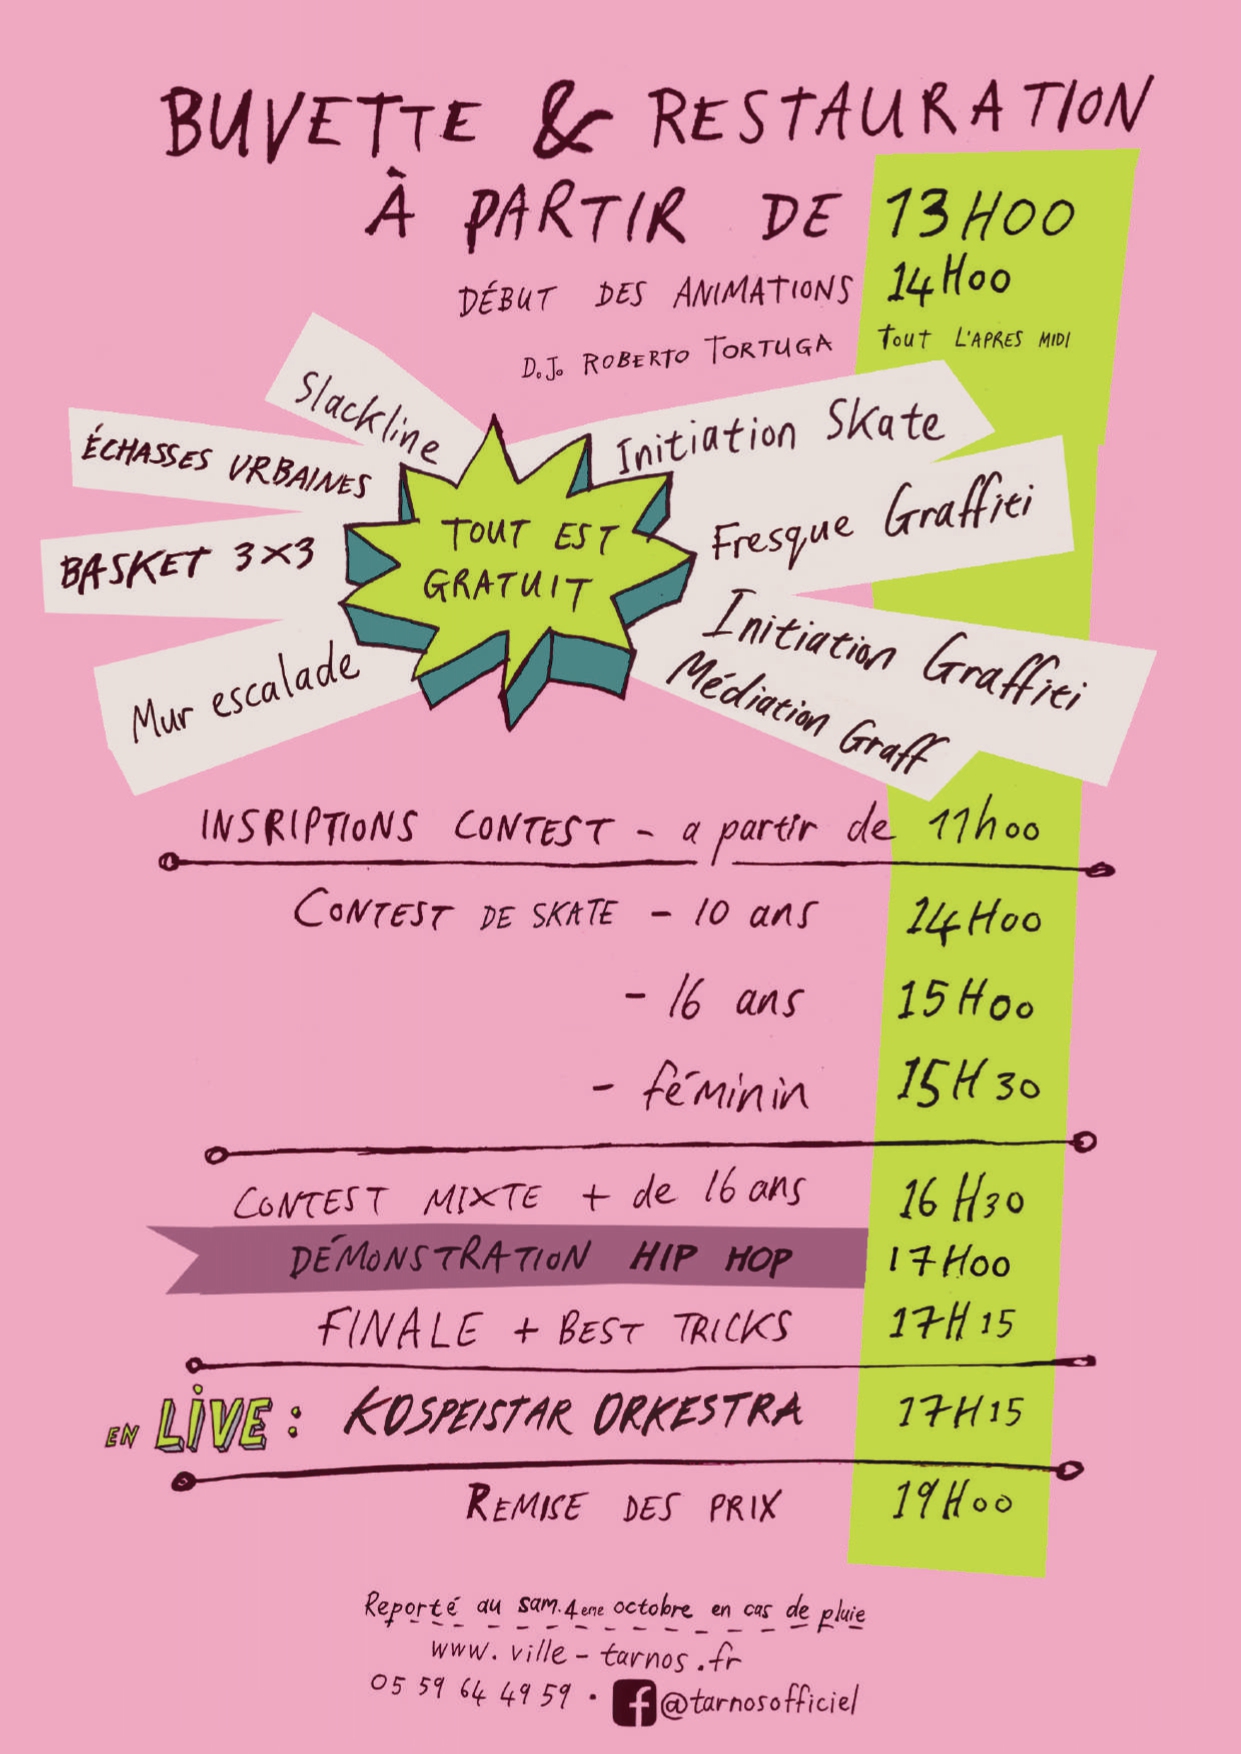 BUVETTE & RESTAURATION
À PARTIR DE 13H00
DÉBUT DES ANIMATIONS 14H00
D.J. ROBERTO TORTUGA Tout L'APRES MIDI
Slackline
ÉCHASSES URBAINES
BASKET 3x3
Mur escalade
TOUT EST
GRATUIT
Initiation Skate
Fresque Graffiti
Initiation Graffiti
Médiation Graff
INSRIPTIONS CONTEST - a partir de 11h00
CONTEST DE SKATE - 10 ans 14H00
- 16 ans 15H00
- féminin 15H30
CONTEST MIXTE + de 16 ans 16H30
DÉMONSTRATION HIP HOP 17H00
FINALE + BEST TRICKS 17H15
EN LIVE : KOSPEISTAR ORKESTRA 17H15
REMISE DES PRIX 19H00
Reporté au sam. 4eme octobre en cas de pluie
www.ville-tarnos.fr
05 59 64 49 59 · f @tarnosofficiel